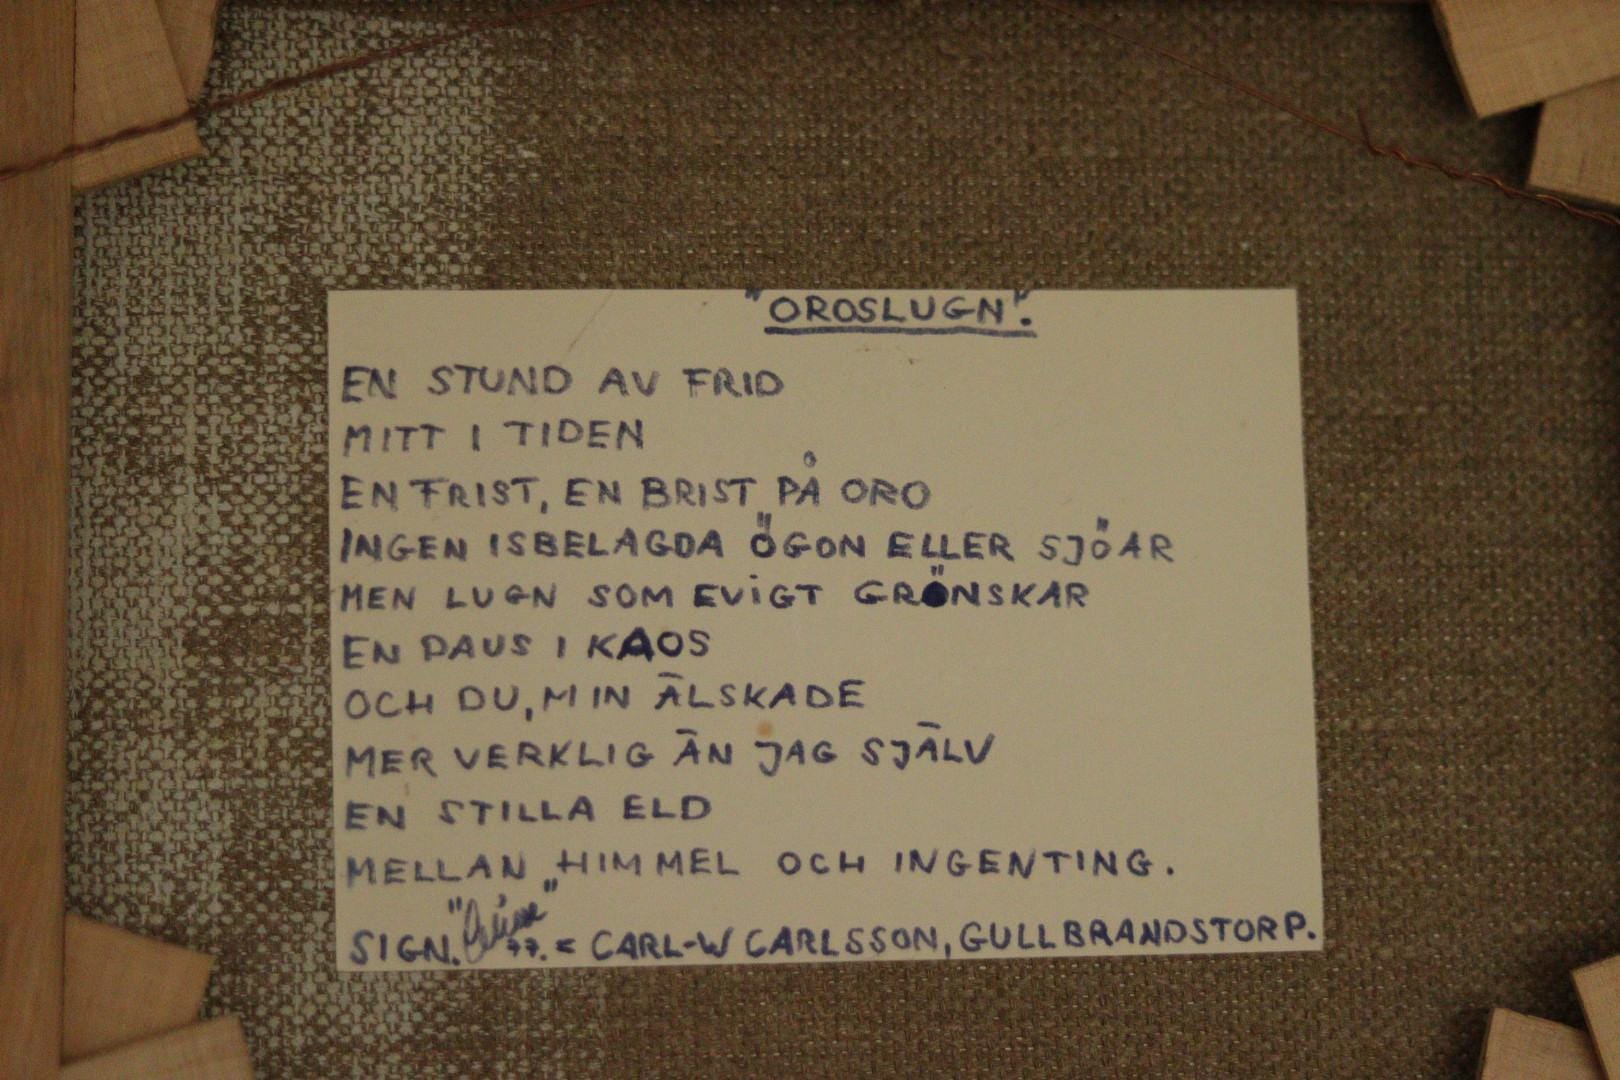 "OROSLUGN".
EN STUND AV FRID
MITT I TIDEN
EN FRIST, EN BRIST PÅ ORO
INGEN ISBELAGDA ÖGON ELLER SJÖAR
MEN LUGN SOM EVIGT GRÖNSKAR
EN PAUS I KAOS
OCH DU, MIN ÄLSKADE
MER VERKLIG ÄN JAG SJÄLV
EN STILLA ELD
MELLAN HIMMEL OCH INGENTING.
SIGN. 77. = CARL-W CARLSSON, GULLBRANDSTORP.